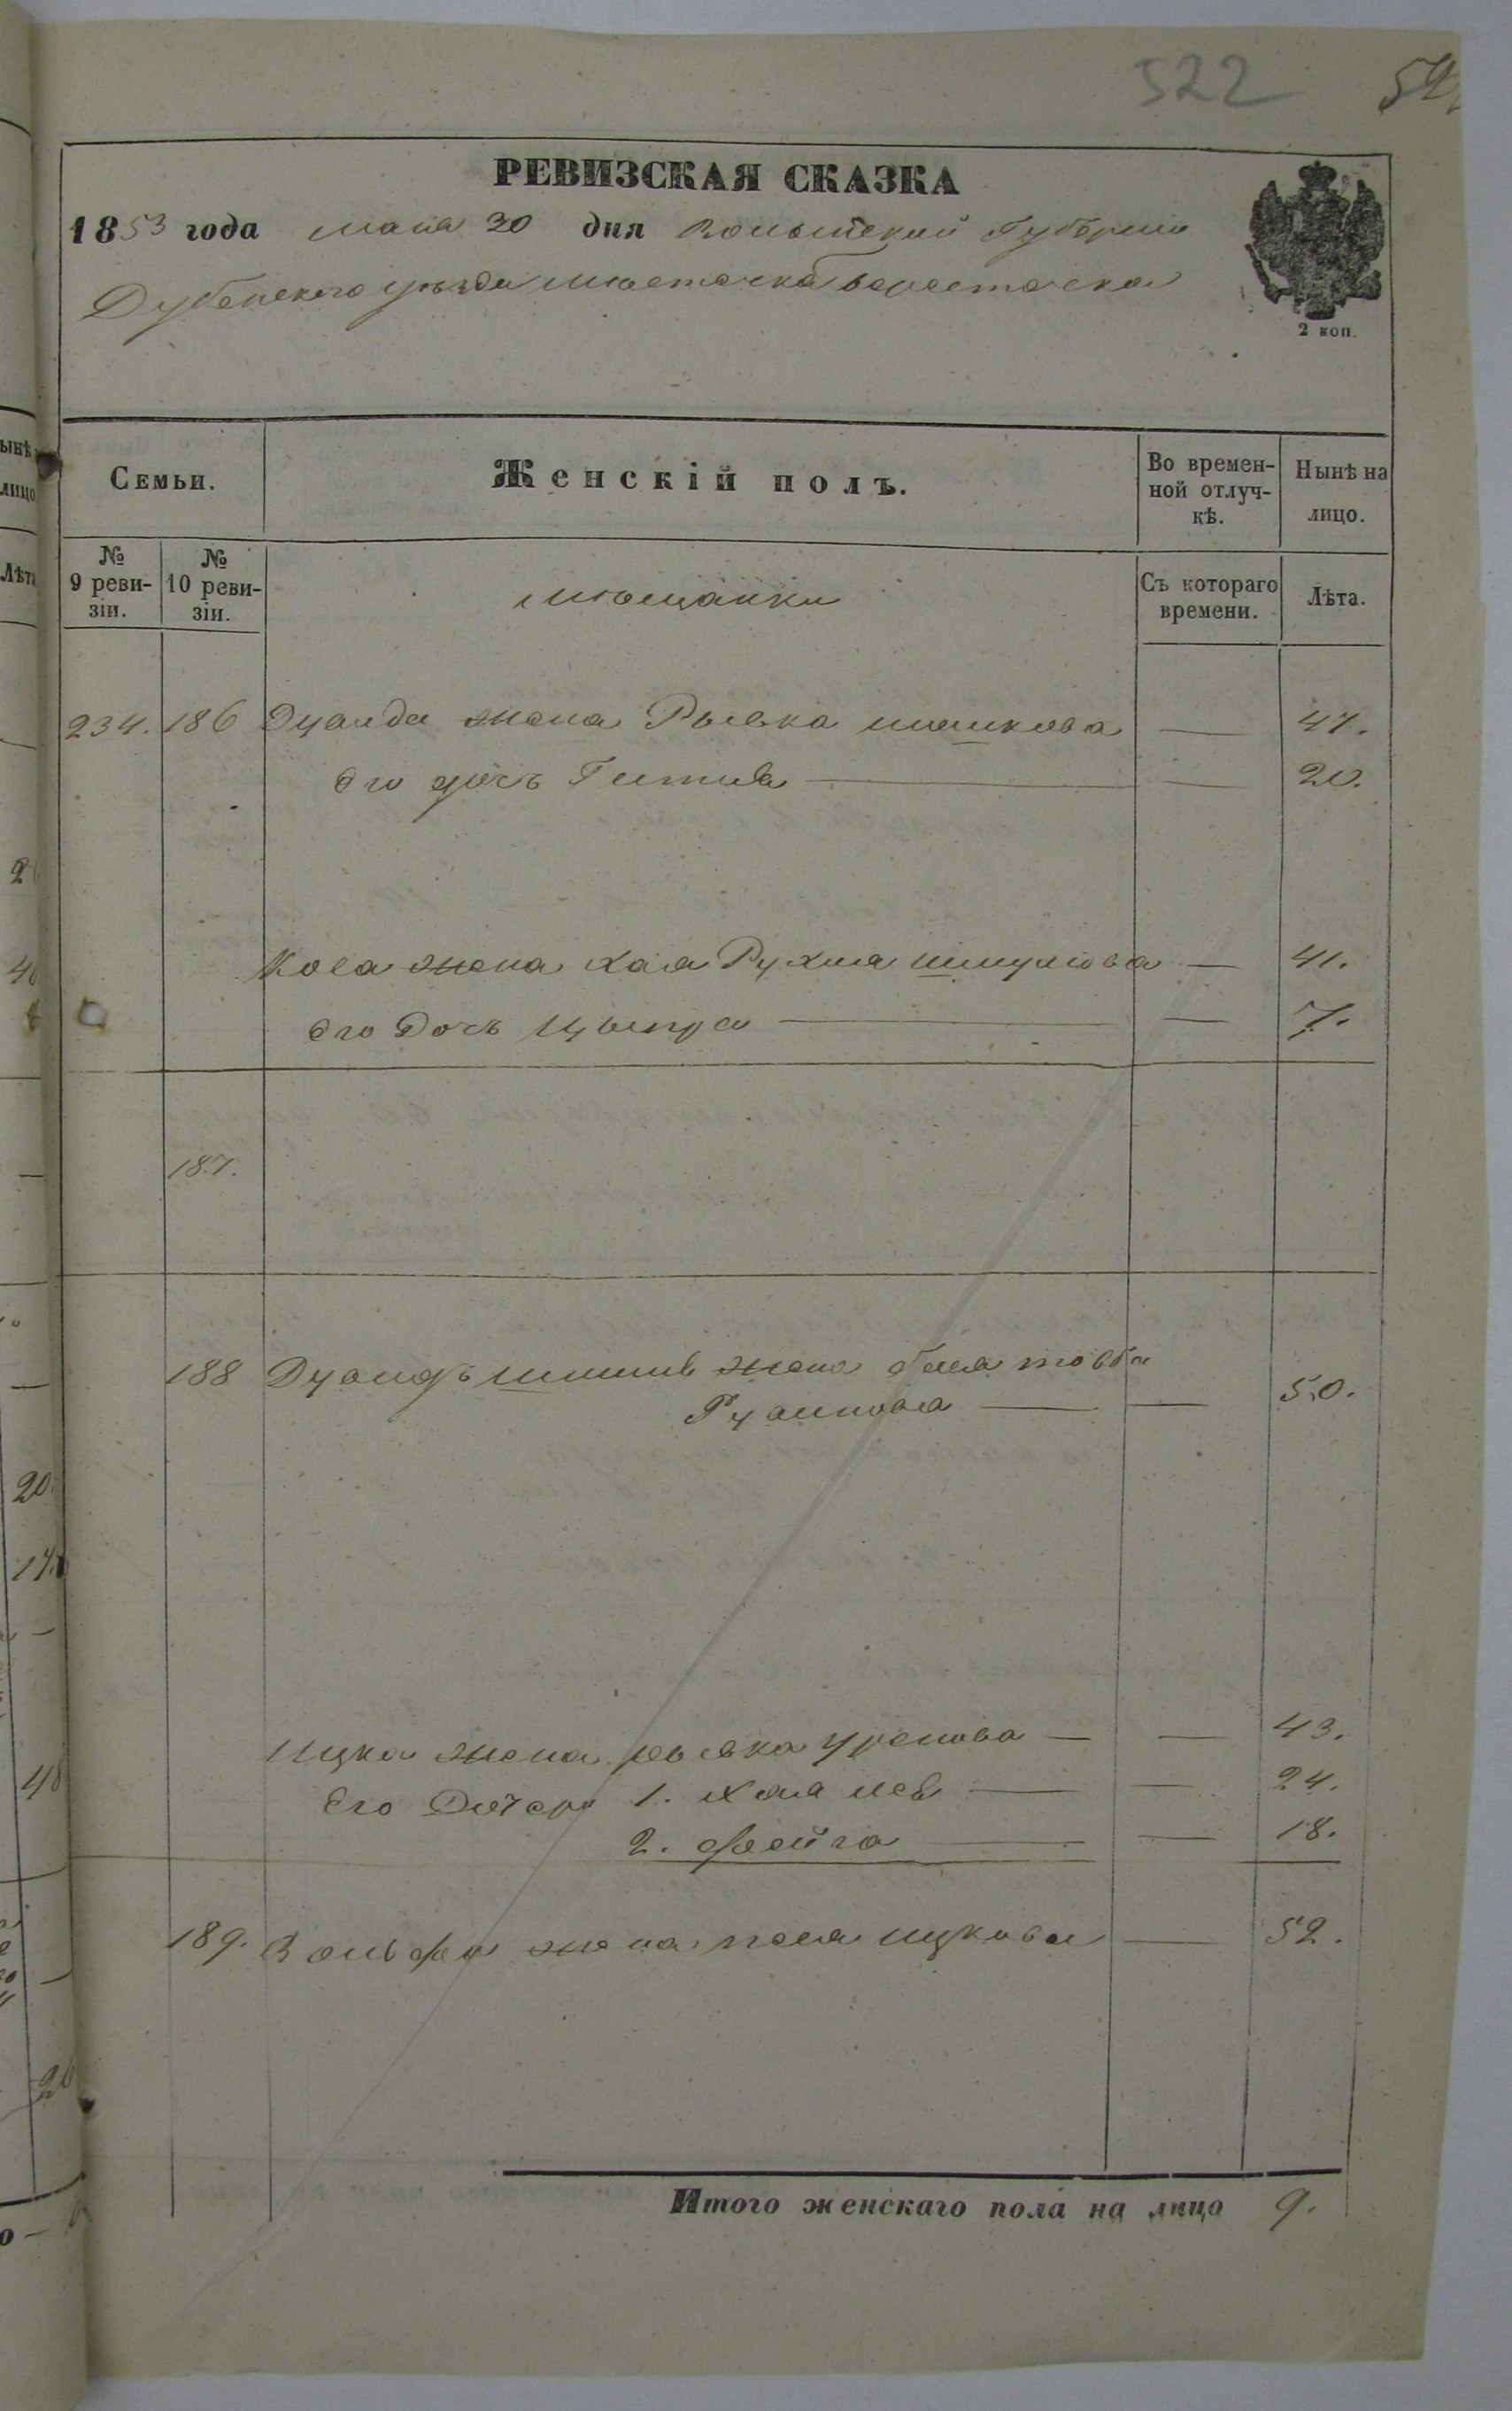 522
РЕВИЗСКАЯ СКАЗКА
1853 года маія 30 дня Волынской Губерніи
Дубенского уезда местечка Берестечка
2 коп.
Семьи.
Женскій полъ.
Во времен-
ной отлуч-
кѣ.
Нынѣ на
лицо.
№
9 реви-
зіи.
№
10 реви-
зіи.
мещанки
Съ котораго
времени.
Лѣта.
234. 186 жена Рывка — 47.
Его дочь Гитля — 20.
жена Хая Рухля Шмулiова — 41.
Его Дочь Ципра — 7.
187.
188 жена Бейла Товба
— 50.
Ицка жена Рывка — 43.
Его Дочери 1. Хая Лея — 24.
2. Фейга — 18.
189. Вольфа жена Песя Ицкова — 52.
Итого женскаго пола на лицо 9.